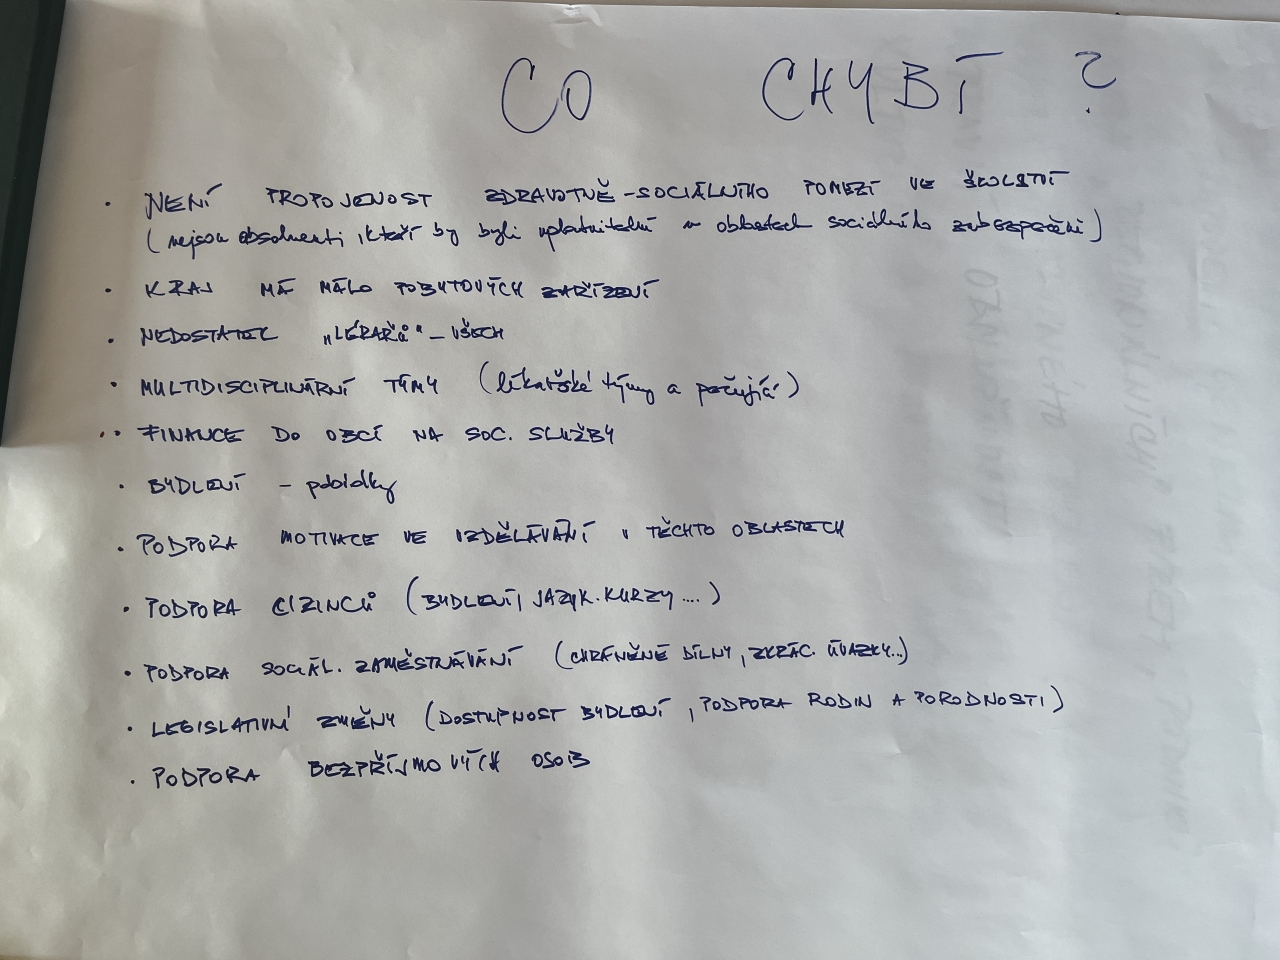 CO CHYBÍ ?
• NENÍ PROPOJENOST ZDRAVOTNĚ-SOCIÁLNÍHO POMEZÍ VE ŠKOLSTVÍ
(nejsou absolventi, kteří by byli uplatnitelní v oblastech sociálního zabezpečení)
• KRAJ MÁ MÁLO POBYTOVÝCH ZAŘÍZENÍ
• NEDOSTATEK „LÉKAŘŮ" – VŠECH
• MULTIDISCIPLINÁRNÍ TÝMY (lékařské týmy a pečující)
• FINANCE DO OBCÍ NA SOC. SLUŽBY
• BYDLENÍ – pobídky
• PODPORA MOTIVACE VE VZDĚLÁVÁNÍ V TĚCHTO OBLASTECH
• PODPORA CIZINCŮ (BYDLENÍ, JAZYK. KURZY ....)
• PODPORA SOCIÁL. ZAMĚSTNÁVÁNÍ (CHRÁNĚNÉ DÍLNY, ZKRÁC. ÚVAZKY...)
• LEGISLATIVNÍ ZMĚNY (DOSTUPNOST BYDLENÍ, PODPORA RODIN A PORODNOSTI)
• PODPORA BEZPŘÍJMOVÝCH OSOB